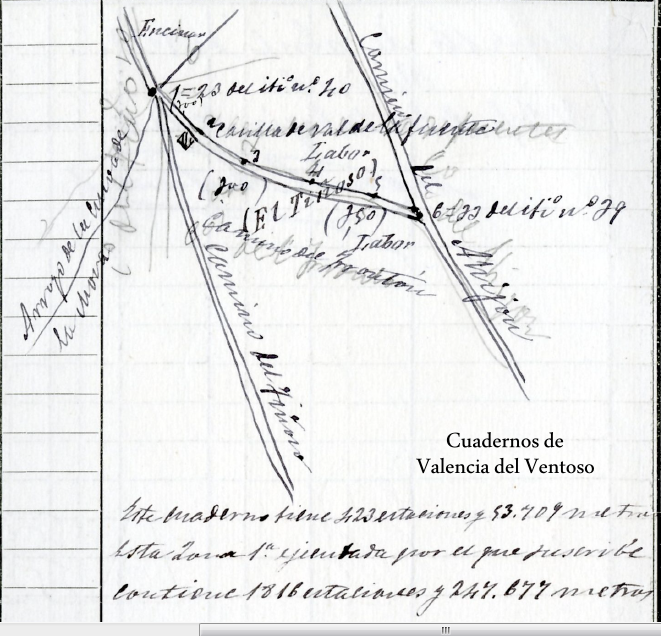 Encinar
1=23 del itº nº 40
(200)
2 Casilla de val de la fuente
3
Labor
4
5
(200)
(El Tiñoso)
(350)
6=33 del itº nº 39
Labor
Camino de
Camino del Tiñoso
Camino
del
Arroyo de la
la
Cuadernos de
Valencia del Ventoso
Este cuaderno tiene 423 estaciones y 53.709 metros
Esta Zona 1ª ejecutada por el que suscribe
contiene 1816 estaciones y 247.677 metros